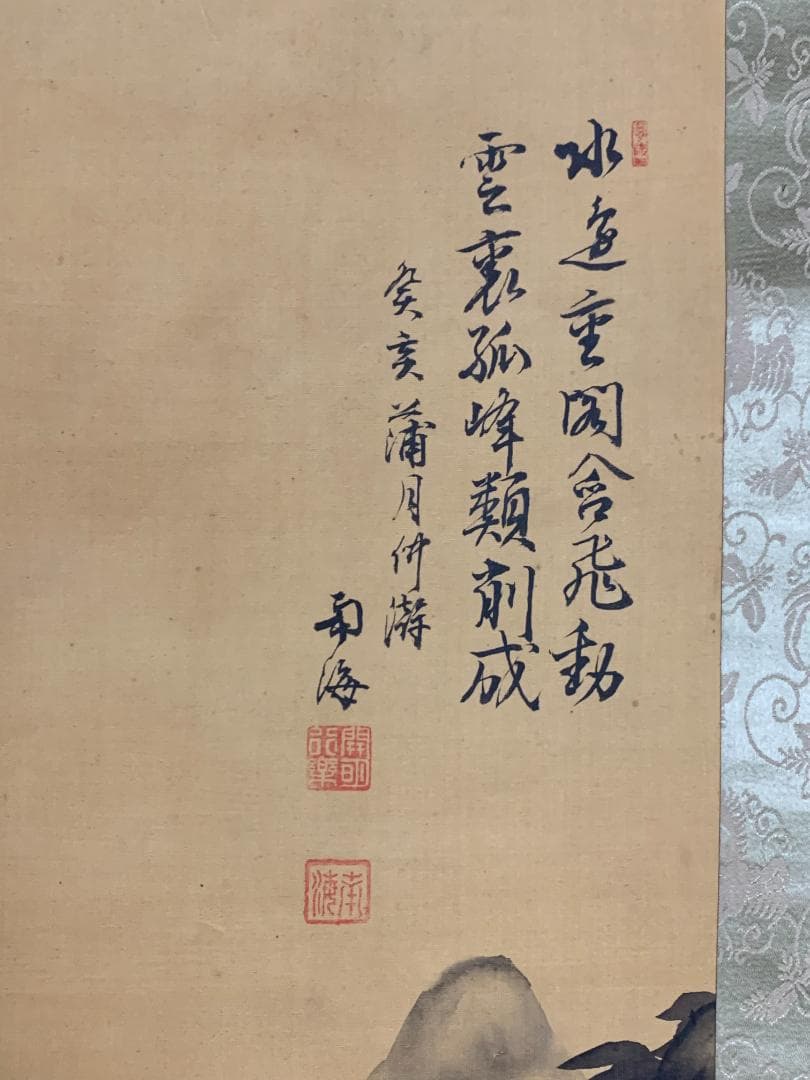 水邊重閣含飛動
雲裏孤峰類削成
癸亥蒲月併
南海
開明
南海